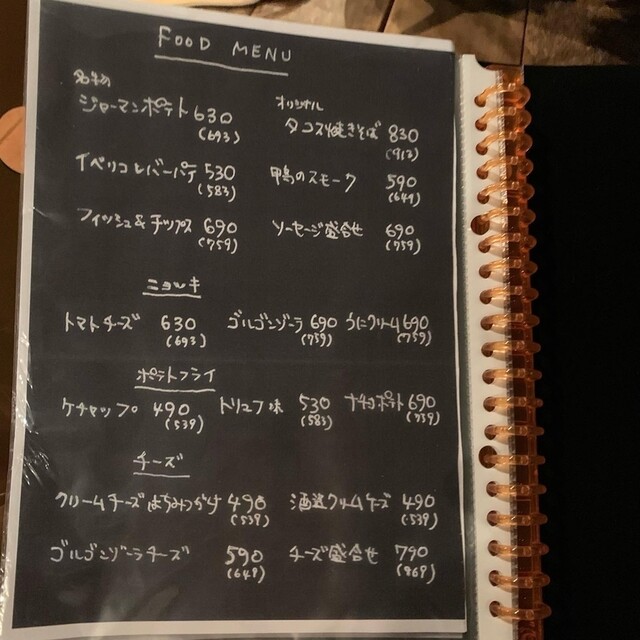 FOOD MENU
名物
ジャーマンポテト 630
(693)
オリジナル
タコス焼きそば 830
(913)
イベリコレバーパテ 530
(583)
鴨のスモーク 590
(649)
フィッシュ&チップス 690
(759)
ソーセージ盛合せ 690
(759)
ニョッキ
トマトチーズ 630
(693)
ゴルゴンゾーラ 690
(759)
うにクリーム 690
(759)
ポテトフライ
ケチャップ 490
(539)
トリュフ味 530
(583)
ナチョポテト 690
(759)
チーズ
クリームチーズはちみつがけ 490
(539)
酒盗クリームチーズ 490
(539)
ゴルゴンゾーラチーズ 590
(649)
チーズ盛合せ 790
(869)